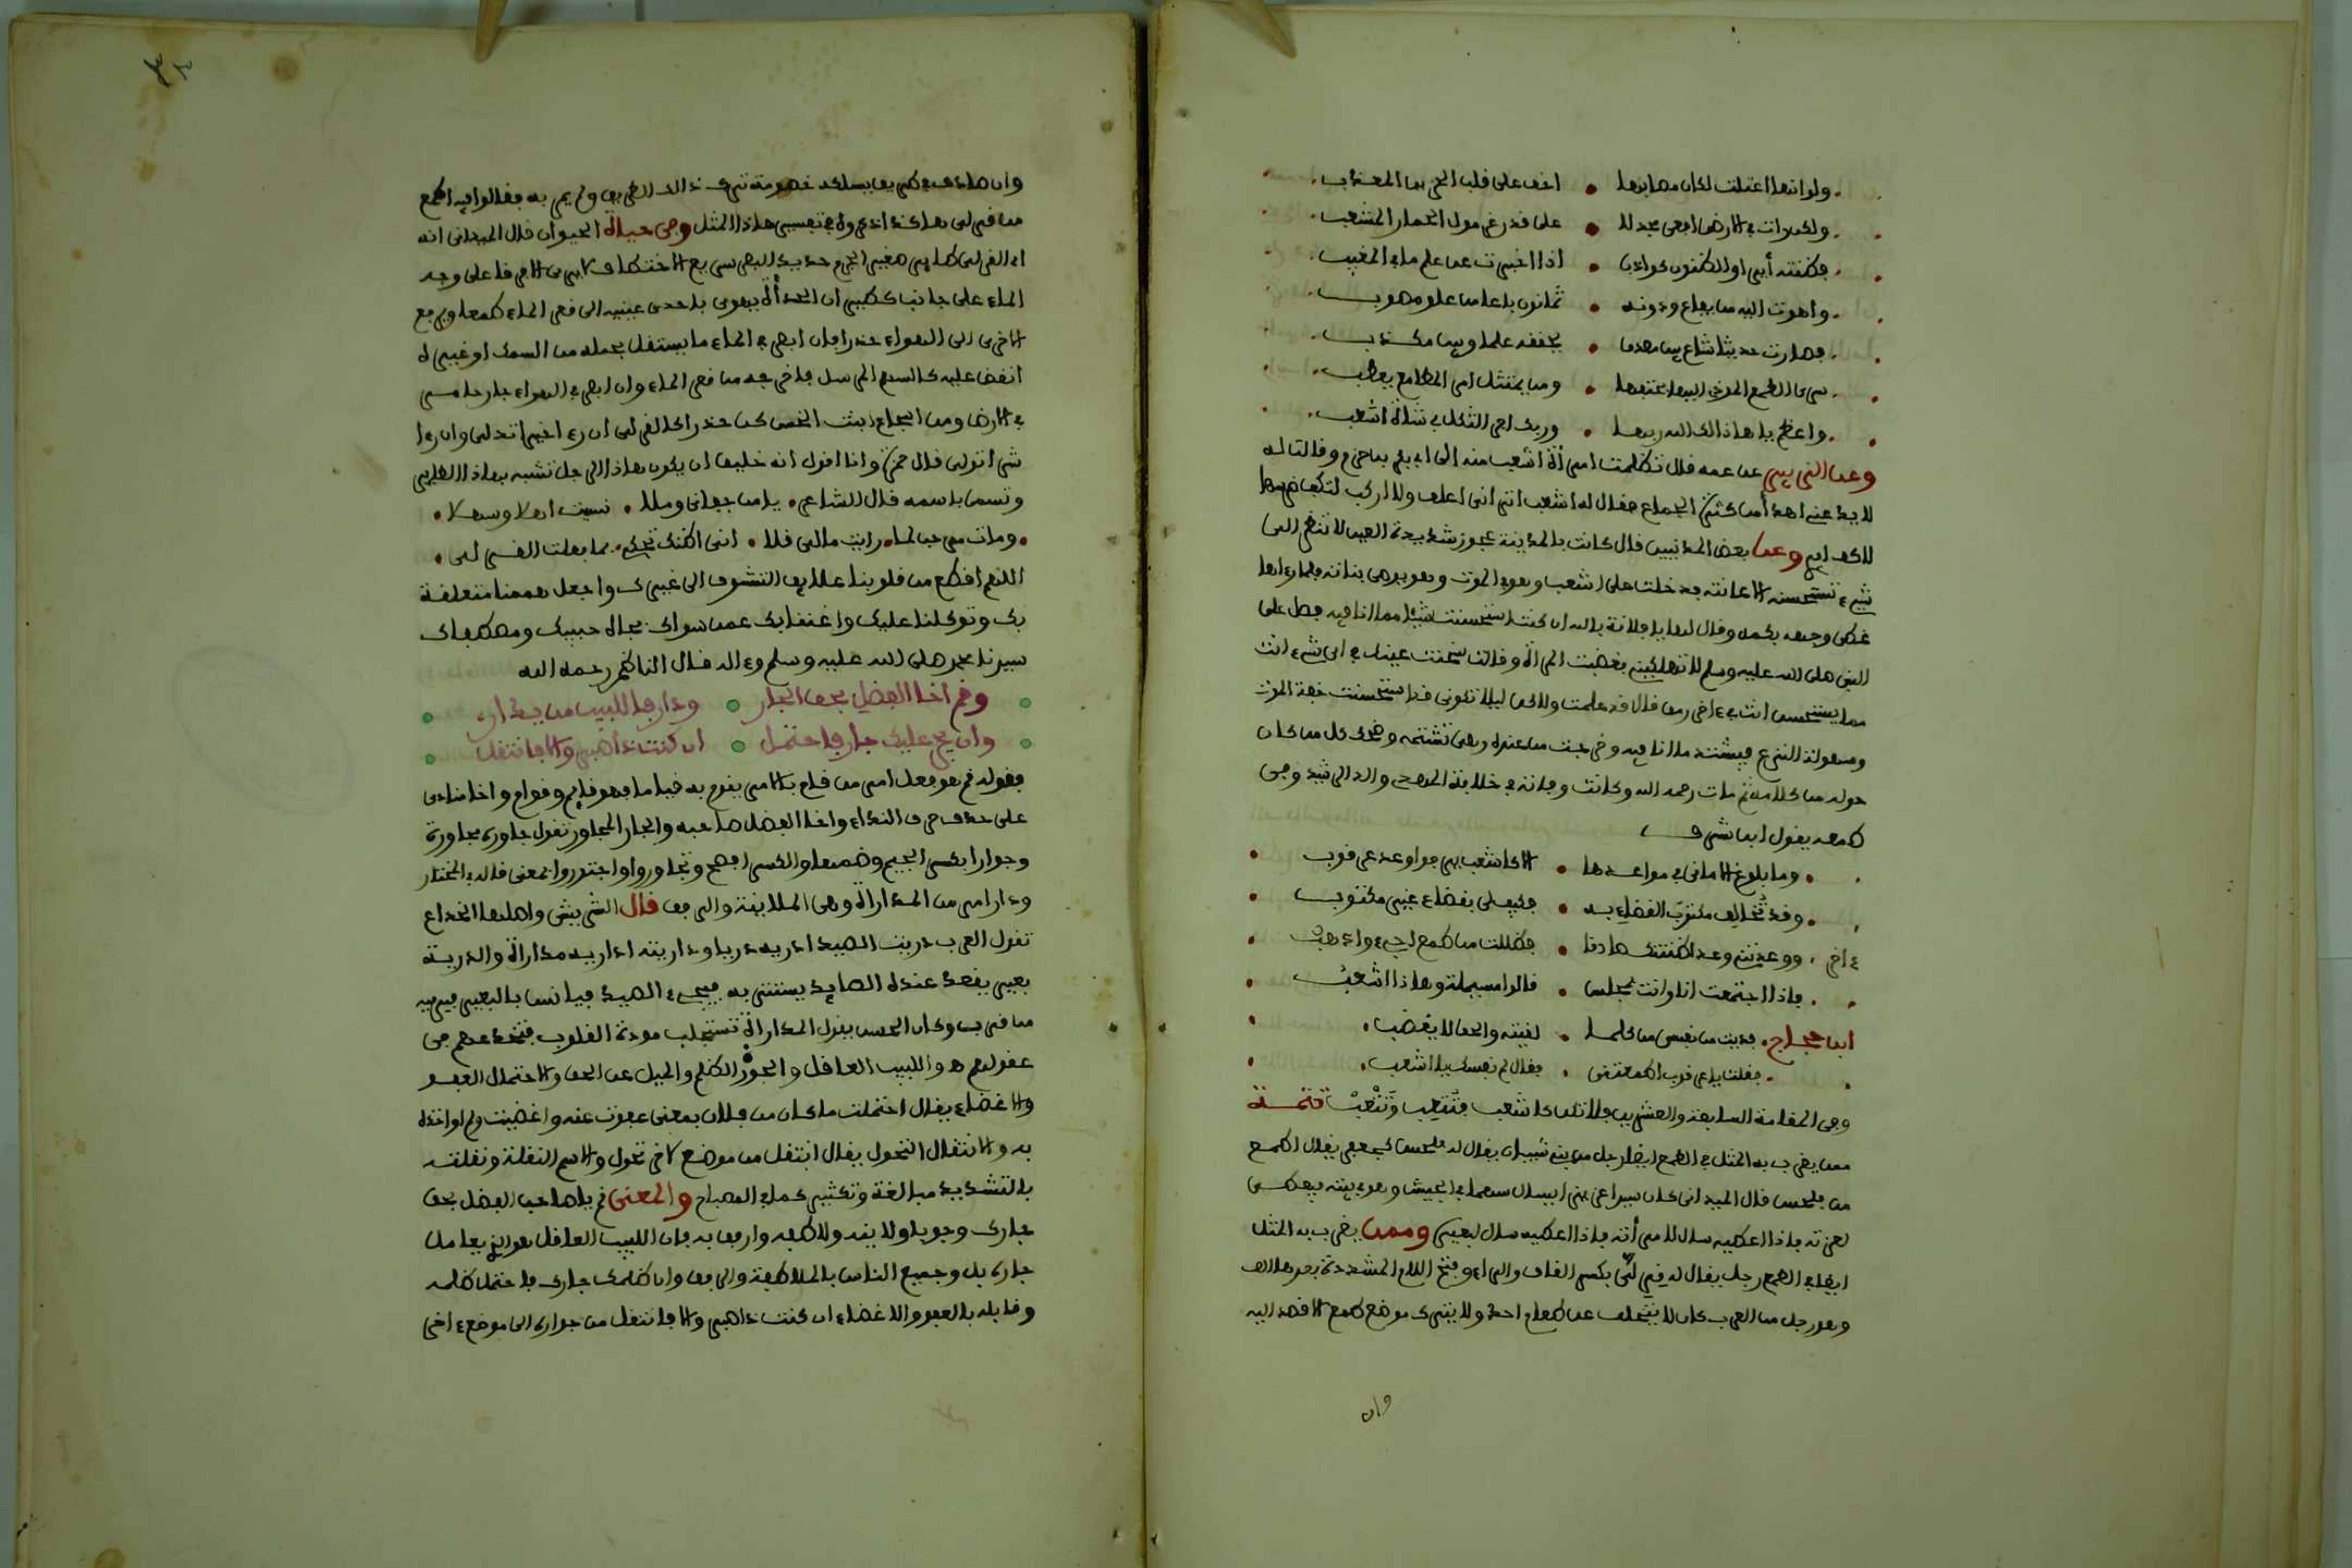 ولو انها اعتلت لكان مصابها • اخف على قلب
ولكن رات في الارض افعى مجدلا • على قدر غرمول الحمار المشعب
فظنته أير او الظنون كواذب • اذا اخبرت عن علم ما في المغيب
واهوت اليه من يفاع ودونه • ثمانون باعا من علو مصوب
فصارت حديثا شاع بين • يحققه علما وبين مكذب
سرى الطمع المردي اليها بحتفها • ومن يمتثل امر المطامع يعطب
واعظم يا هاذا لك الله ربها • وربك اجر الثكل في شاة اشعب
وعن الزبير عن عمه قال تظلمت امرأة اشعب منه الى ابي بكر بن حزم وقالت له
لا يدعني اهدأ من كثرة الجماع فقال له اشعب اتراني اعلف ولا اركب لتكف ضرسها
لاكف ايري وعن بعض المدنيين قال كانت بالمدينة عجوز شديدة العين لا تنظر الى
شيء تستحسنه الا عانته فدخلت على اشعب وهو في الموت وهو يوصي بناته فلما رءاها
غطى وجهه بكمه وقال لها يا فلانة بالله ان كنت استحسنت شيئا مما انا فيه فصل على
النبي صلى الله عليه وسلم لا تهلكيني فغضبت المرأة وقالت سخنت عينك في اي شيء انت
مما يستحسن انت في ءاخر رمق قال قد علمت ولاكن ليلا تكوني قد استحسنت خفة الموت
وسهولة النزع فيشتد ما انا فيه وخرجت من عنده وهي تشتمه وضحك كل من كان
حوله من كلامه ثم مات رحمه الله وكانت وفاته في خلافة المهدي والد الرشيد وفي
طمعه يقول ابن شرف
وما بلوغ الاماني في مواعدها • الا كاشعب يرجو وعد عرقوب
وقد تخالف مكتوب القضاء به • فكيف لي بقضاء غير مكتوب
ءاخر ووعدتني وعدا ظننتك صادقا • فظللت من طمع اجيء واذهب
فاذا اجتمعت انا وانت بمجلس • قالوا مسيلمة وهاذا اشعب
ابن حجاج فديت من نفسي من كلما • لقيته والحق لا يغضب
فقلت يا عرقوب اطمعتني • فقال لم نفسك يا اشعب
وفي المقامة السابعة والعشرين فلا تكن كاشعب فتتعب وتتعب تتمة
ممن يضرب به المثل في الطمع ايضا رجل من بني شيبان يقال له فلحس كجعفر يقال اطمع
من فلحس قال الميداني كان سيدا عزيزا يسال سهما في الجيش وهو في بيته فيعطى
لعزته فاذا اعطيه سال لامرأته فاذا اعطيه سال لبعيره وممن يضرب به المثل
ايضا في الطمع رجل يقال له قرلى بكسر القاف والراء وفتح اللام المشددة بعدها الف
وهو رجل من العرب كان لا يتخلف عن طعام احد ولا يترك موضع طمع الا قصد اليه
وان
وان صادف في طريق يسلكه خصومة ترك ذالك الطريق ولم يمر به فقالوا فيه اطمع
من قرلى هاكذا في تفسير هاذا المثل وفي حياة الحيوان قال الميداني انه
اي القرلى طاير صغير الجرم حديد البصر سريع الاختطاف لا يرى الا مرفرفا على وجه
الماء على جانب كطيران الحدأة يهوي باحدى عينيه الى قعر الماء طمعا ويرفع
الاخرى الى الهواء حذرا فان ابصر في الماء ما يستقل بحمله من السمك او غيره
انقض عليه كالسهم المرسل فاخرجه من قعر الماء وان ابصر في الهواء جارحا مر
في الارض ومن اسجاع ابنت الخس كن حذرا كالقرلى ان رءا خيرا تدلى وان رءا
شرا تولى قال حمزة وانا اقول انه خليق ان يكون هاذا الرجل تشبه بهاذا الطاير
وتسما باسمه قال الشاعر • يا من جفاني وملا • نسيت اهلا وسهلا •
• ومات مرحب لما • رايت مالي قلا • اني اظنك تحكي • بما فعلت القرلى •
اللهم اقطع من قلوبنا علايق التشوف الى غيرك واجعل هممنا متعلقة
بك وتوكلنا عليك واغننا بك عمن سواك بجاه حبيبك ومصطفاك
سيدنا محمد صلى الله عليه وسلم وءاله قال الناظم رحمه الله
وقم اخا الفضل بحق الجار • ودار فاللبيب من يداري
وان يجر عليك جار فاحتمل • ان كنت ذا صبر والا فانتقل
فقوله قم هو فعل امر من قام بالامر يقوم به قياما فهو قايم وقوام واخا منادى
على حذف حرف النداء واخا الفضل صاحبه والجار المجاور تقول جاوره مجاورة
وجوارا بكسر الجيم وضمها والكسر افصح وتجاوروا واجتوروا بمعنى قاله في المختار
ودار امر من المداراة وهي الملاينة والرفق قال الشريشي واصلها الخداع
تقول العرب دريت الصيد ادريه دريا وداريته اداريه مداراة والدرية
بعير يقعد عنده الصايد يستتر به فيجيء الصيد فيانس بالبعير فيرميه
من قريب وكان الحسن يقول المداراة تستجلب مودة القلوب
عقولهم واللبيب العاقل والجور الظلم والميل عن الحق والاحتمال العفو
والاغضاء يقال احتملت ما كان من فلان بمعنى عفوت عنه واغضيت ولم اواخذه
به والانتقال التحول يقال انتقل من موضع لاخر تحول والاسم النقلة ونقلته
بالتشديد مبالغة وتكثير كما في المصباح والمعنى قم يا صاحب الفضل بحق
جارك وجوبا ولاينه ولاطفه وارفق به فان اللبيب العاقل هو الذي يعامل
جاره بل وجميع الناس بالملاطفة والرفق وان ظلمك جارك فاحتمل ظلمه
وقابله بالعفو والاغضاء ان كنت ذا صبر والا فانتقل من جواره الى موضع ءاخر